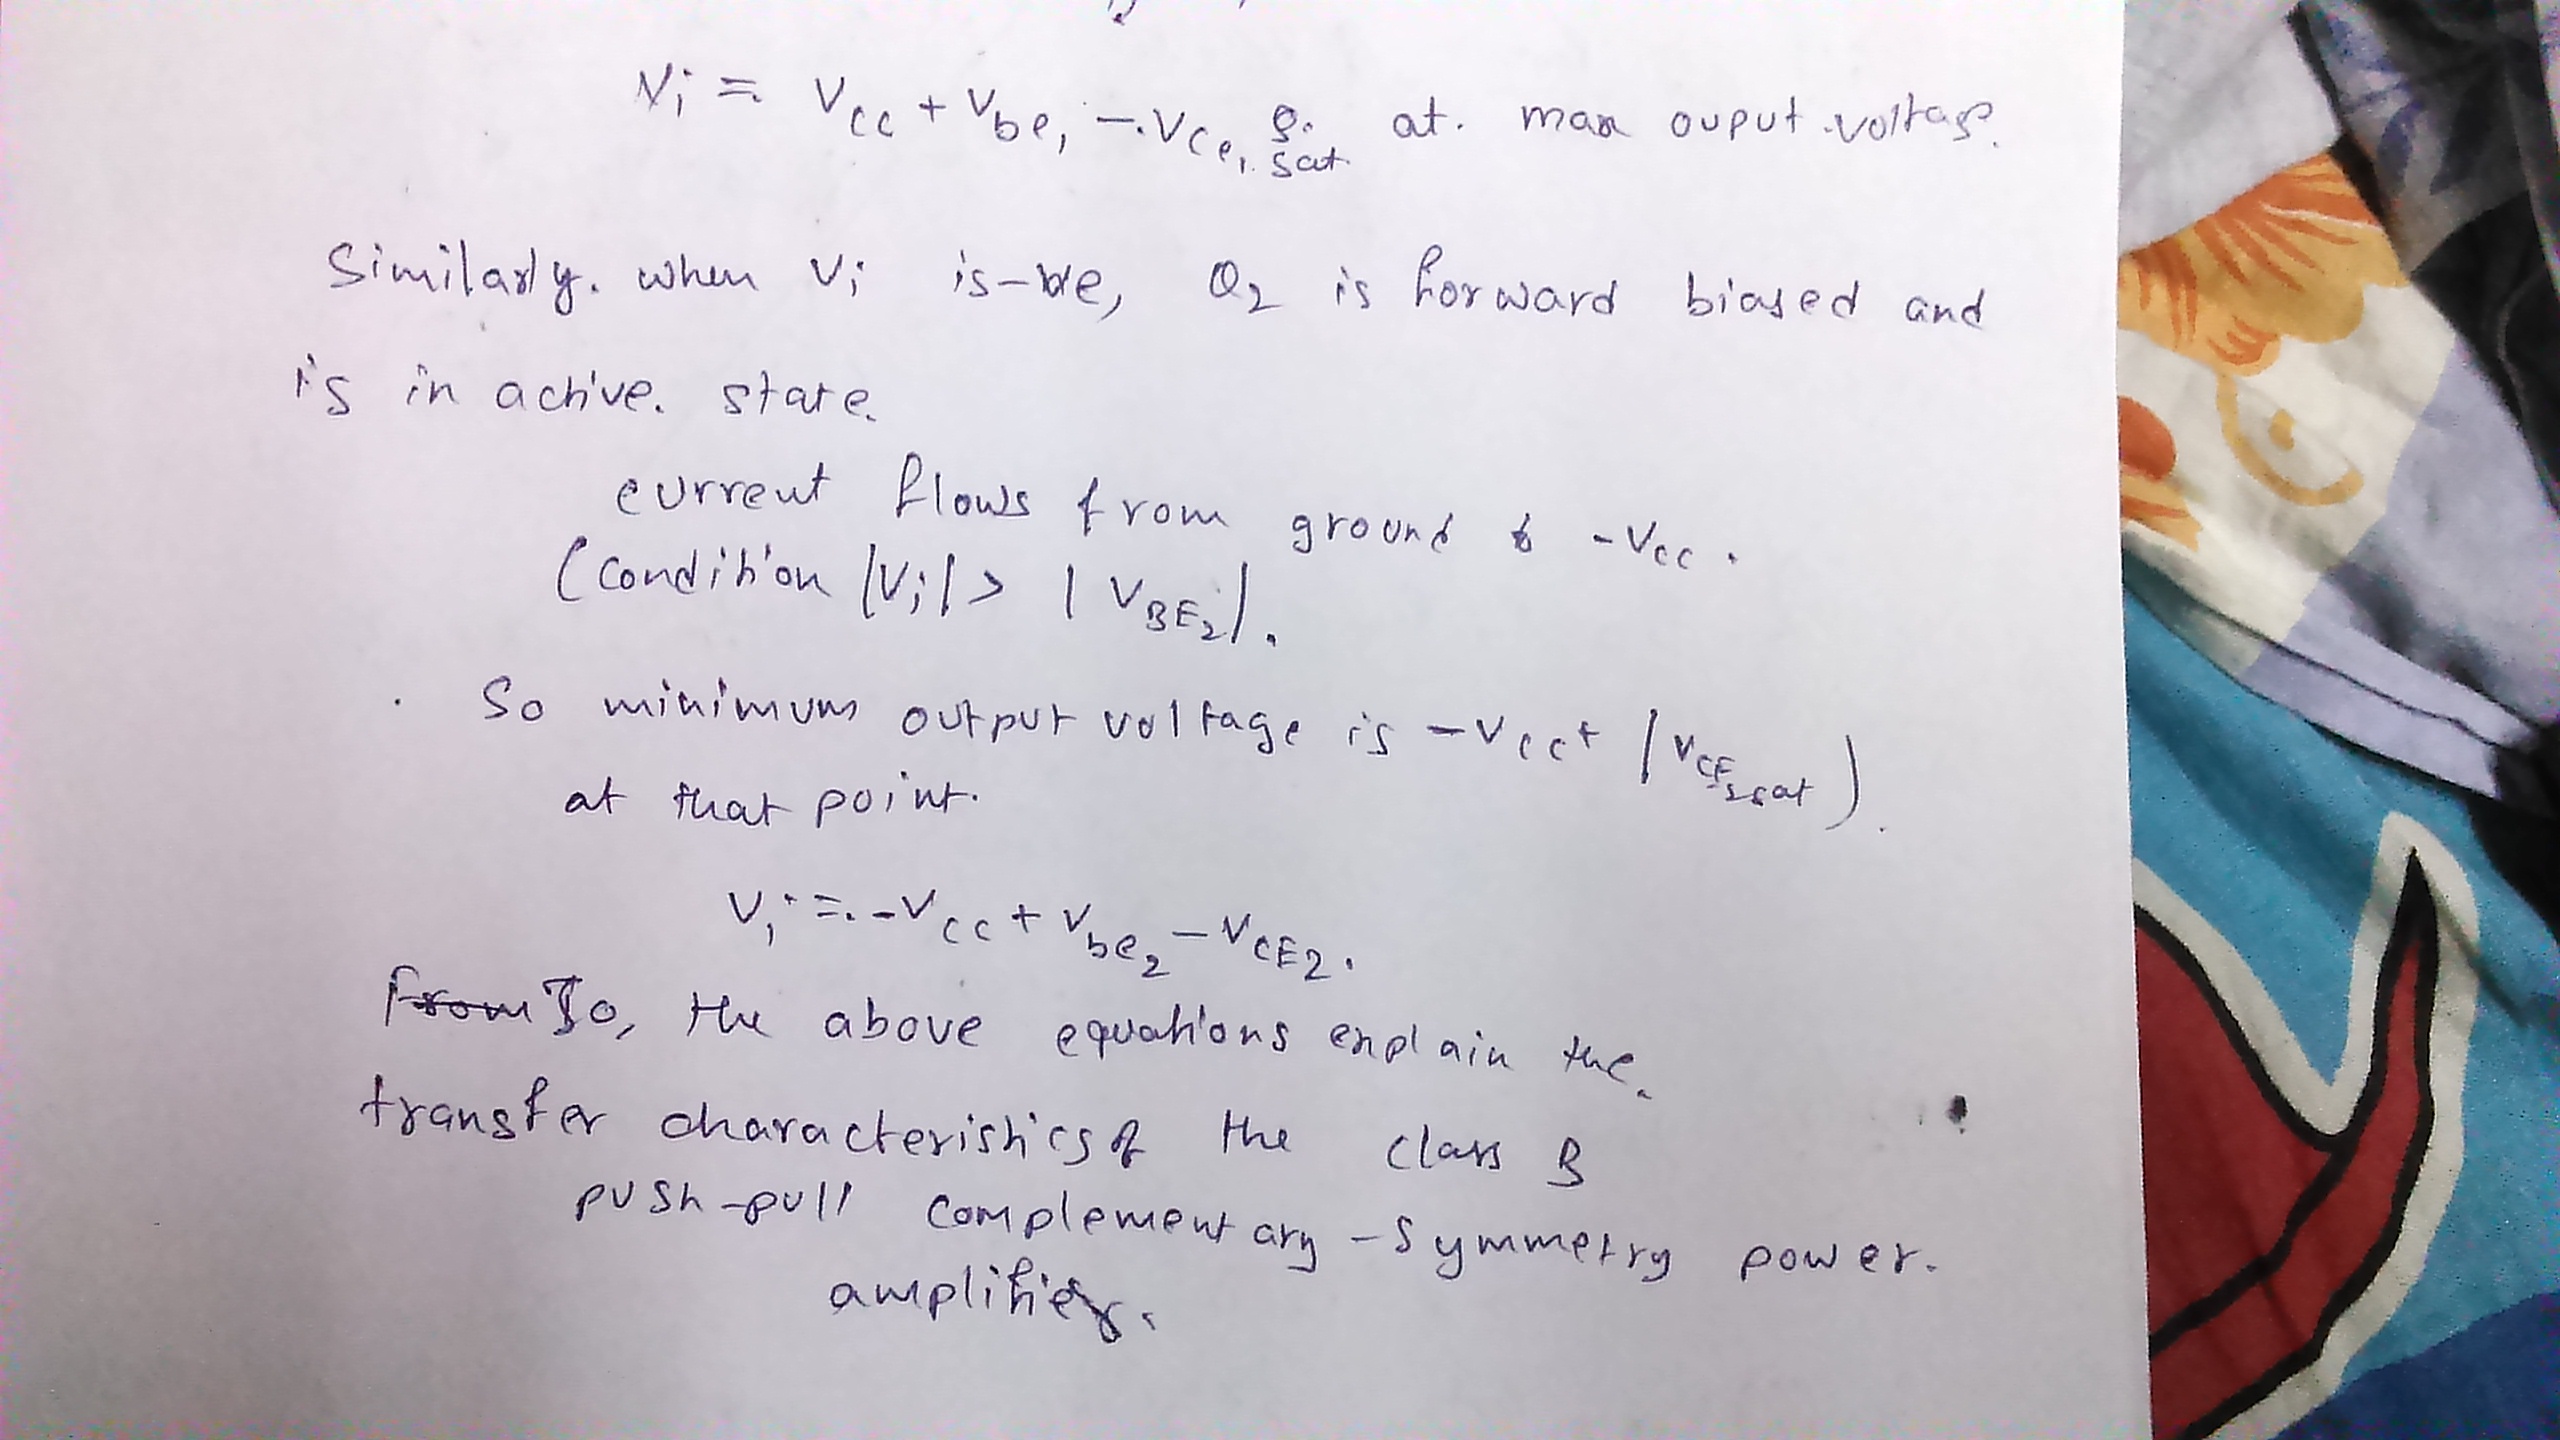 Vi = Vcc + Vbe1 - Vce1 sat at. max ouput voltage.
Similarly. when Vi is -ve, Q2 is forward biased and
is in active. state
current flows from ground & -Vcc.
(condition |Vi| > |VBE2|.
. So minimum output voltage is -Vcc + |VCE2sat)
at that point.
Vi = -Vcc + Vbe2 - VCE2.
So, the above equations explain the
transfer characteristics of the class B
push-pull complementary - symmetry power.
amplifier.